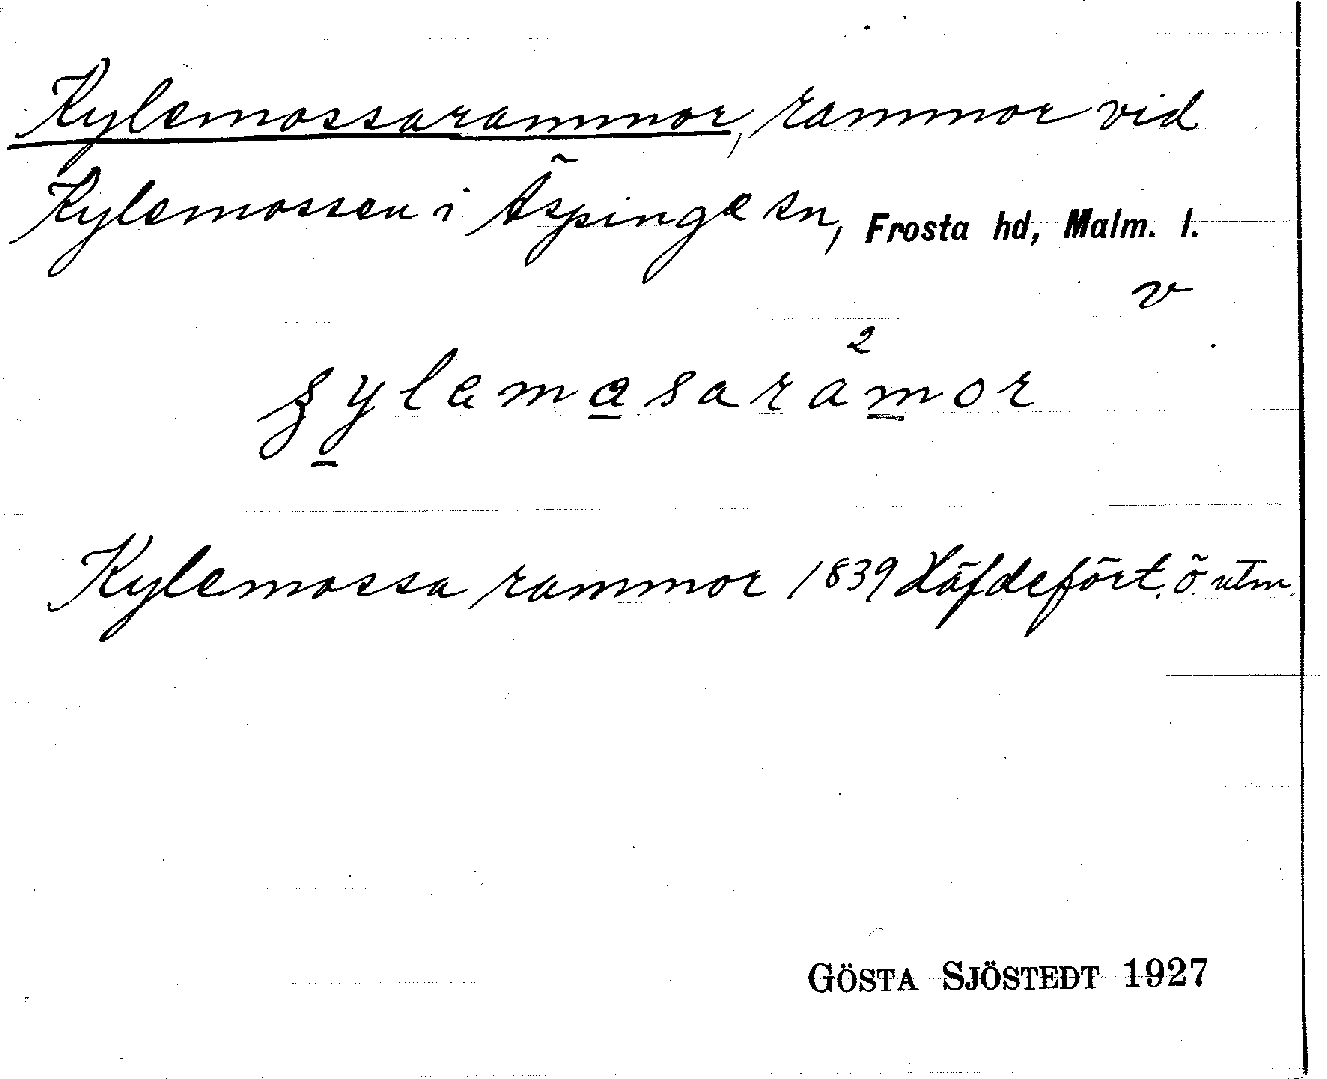 Kylemossarammor, rammor vid
Kylemossen i Äspinge sn, Frosta hd, Malm. l.
v
2
ʒylemasaramor
Kylemossa rammor 1839 Häfdefört. Ö utm.
GÖSTA SJÖSTEDT 1927